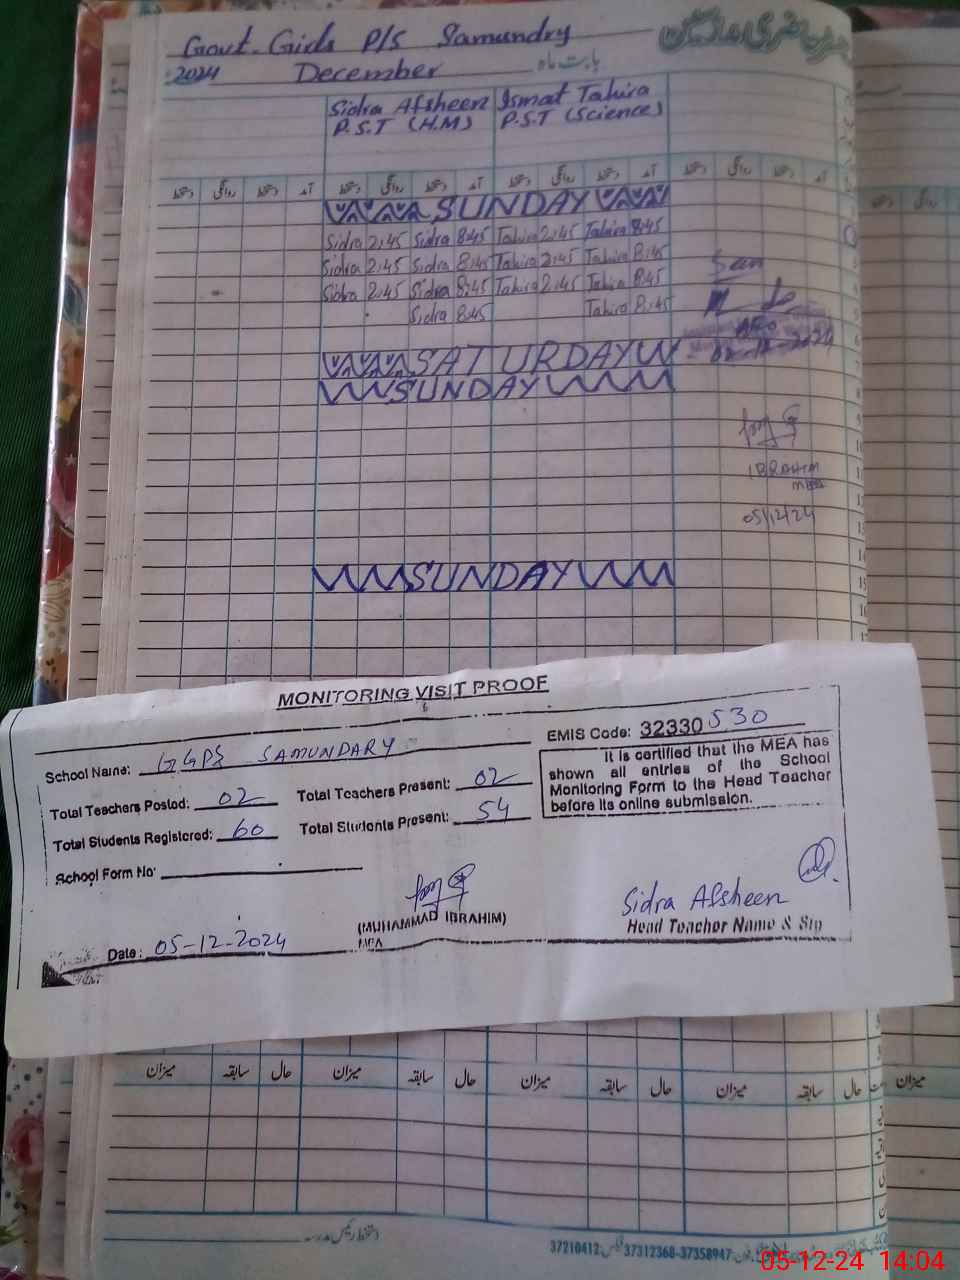 Govt. Girls P/S Samundry
2024 December بابت ماه
Sidra Afsheen Ismat Tahira
P.S.T (H.M) P.S.T (Science)
دستخط روانگی دستخط آمد دستخط روانگی دستخط آمد دستخط روانگی دستخط آمد دستخط روانگی دستخط آمد
SUNDAY
Sidra 2:45 Sidra 8:45 Tahira 2:45 Tahira 8:45
Sidra 2:45 Sidra 8:45 Tahira 2:45 Tahira 8:45
Sidra 2:45 Sidra 8:45 Tahira 2:45 Tahira 8:45
Sidra 8:45 Tahira 8:45
Seen
AEO
SATURDAY
SUNDAY
IBRAHIM
MEA
05/12/24
SUNDAY
MONITORING VISIT PROOF
School Name: GGPS SAMUNDARY
EMIS Code: 32330530
Total Teachers Posted: 02 Total Teachers Present: 02
Total Students Registered: 60 Total Students Present: 54
It is certified that the MEA has
shown all entries of the School
Monitoring Form to the Head Teacher
before its online submission.
School Form No:
Sidra Afsheen
(MUHAMMAD IBRAHIM)
MEA
Head Teacher Name & Stp
Date: 05-12-2024
میزان سابقہ حال میزان سابقہ حال میزان سابقہ حال میزان سابقہ حال میزان
دستخط رئیس مدرسہ
37210412 37312368-37358947
05-12-24 14:04